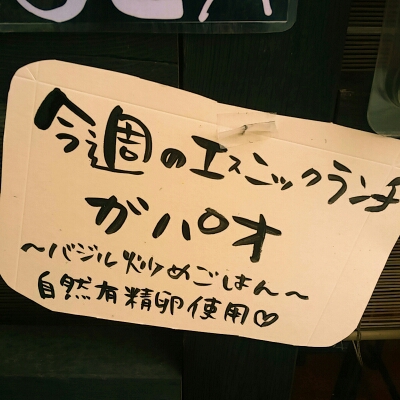 今週のエスニックランチ
ガパオ
～バジル炒めごはん～
自然有精卵使用♡